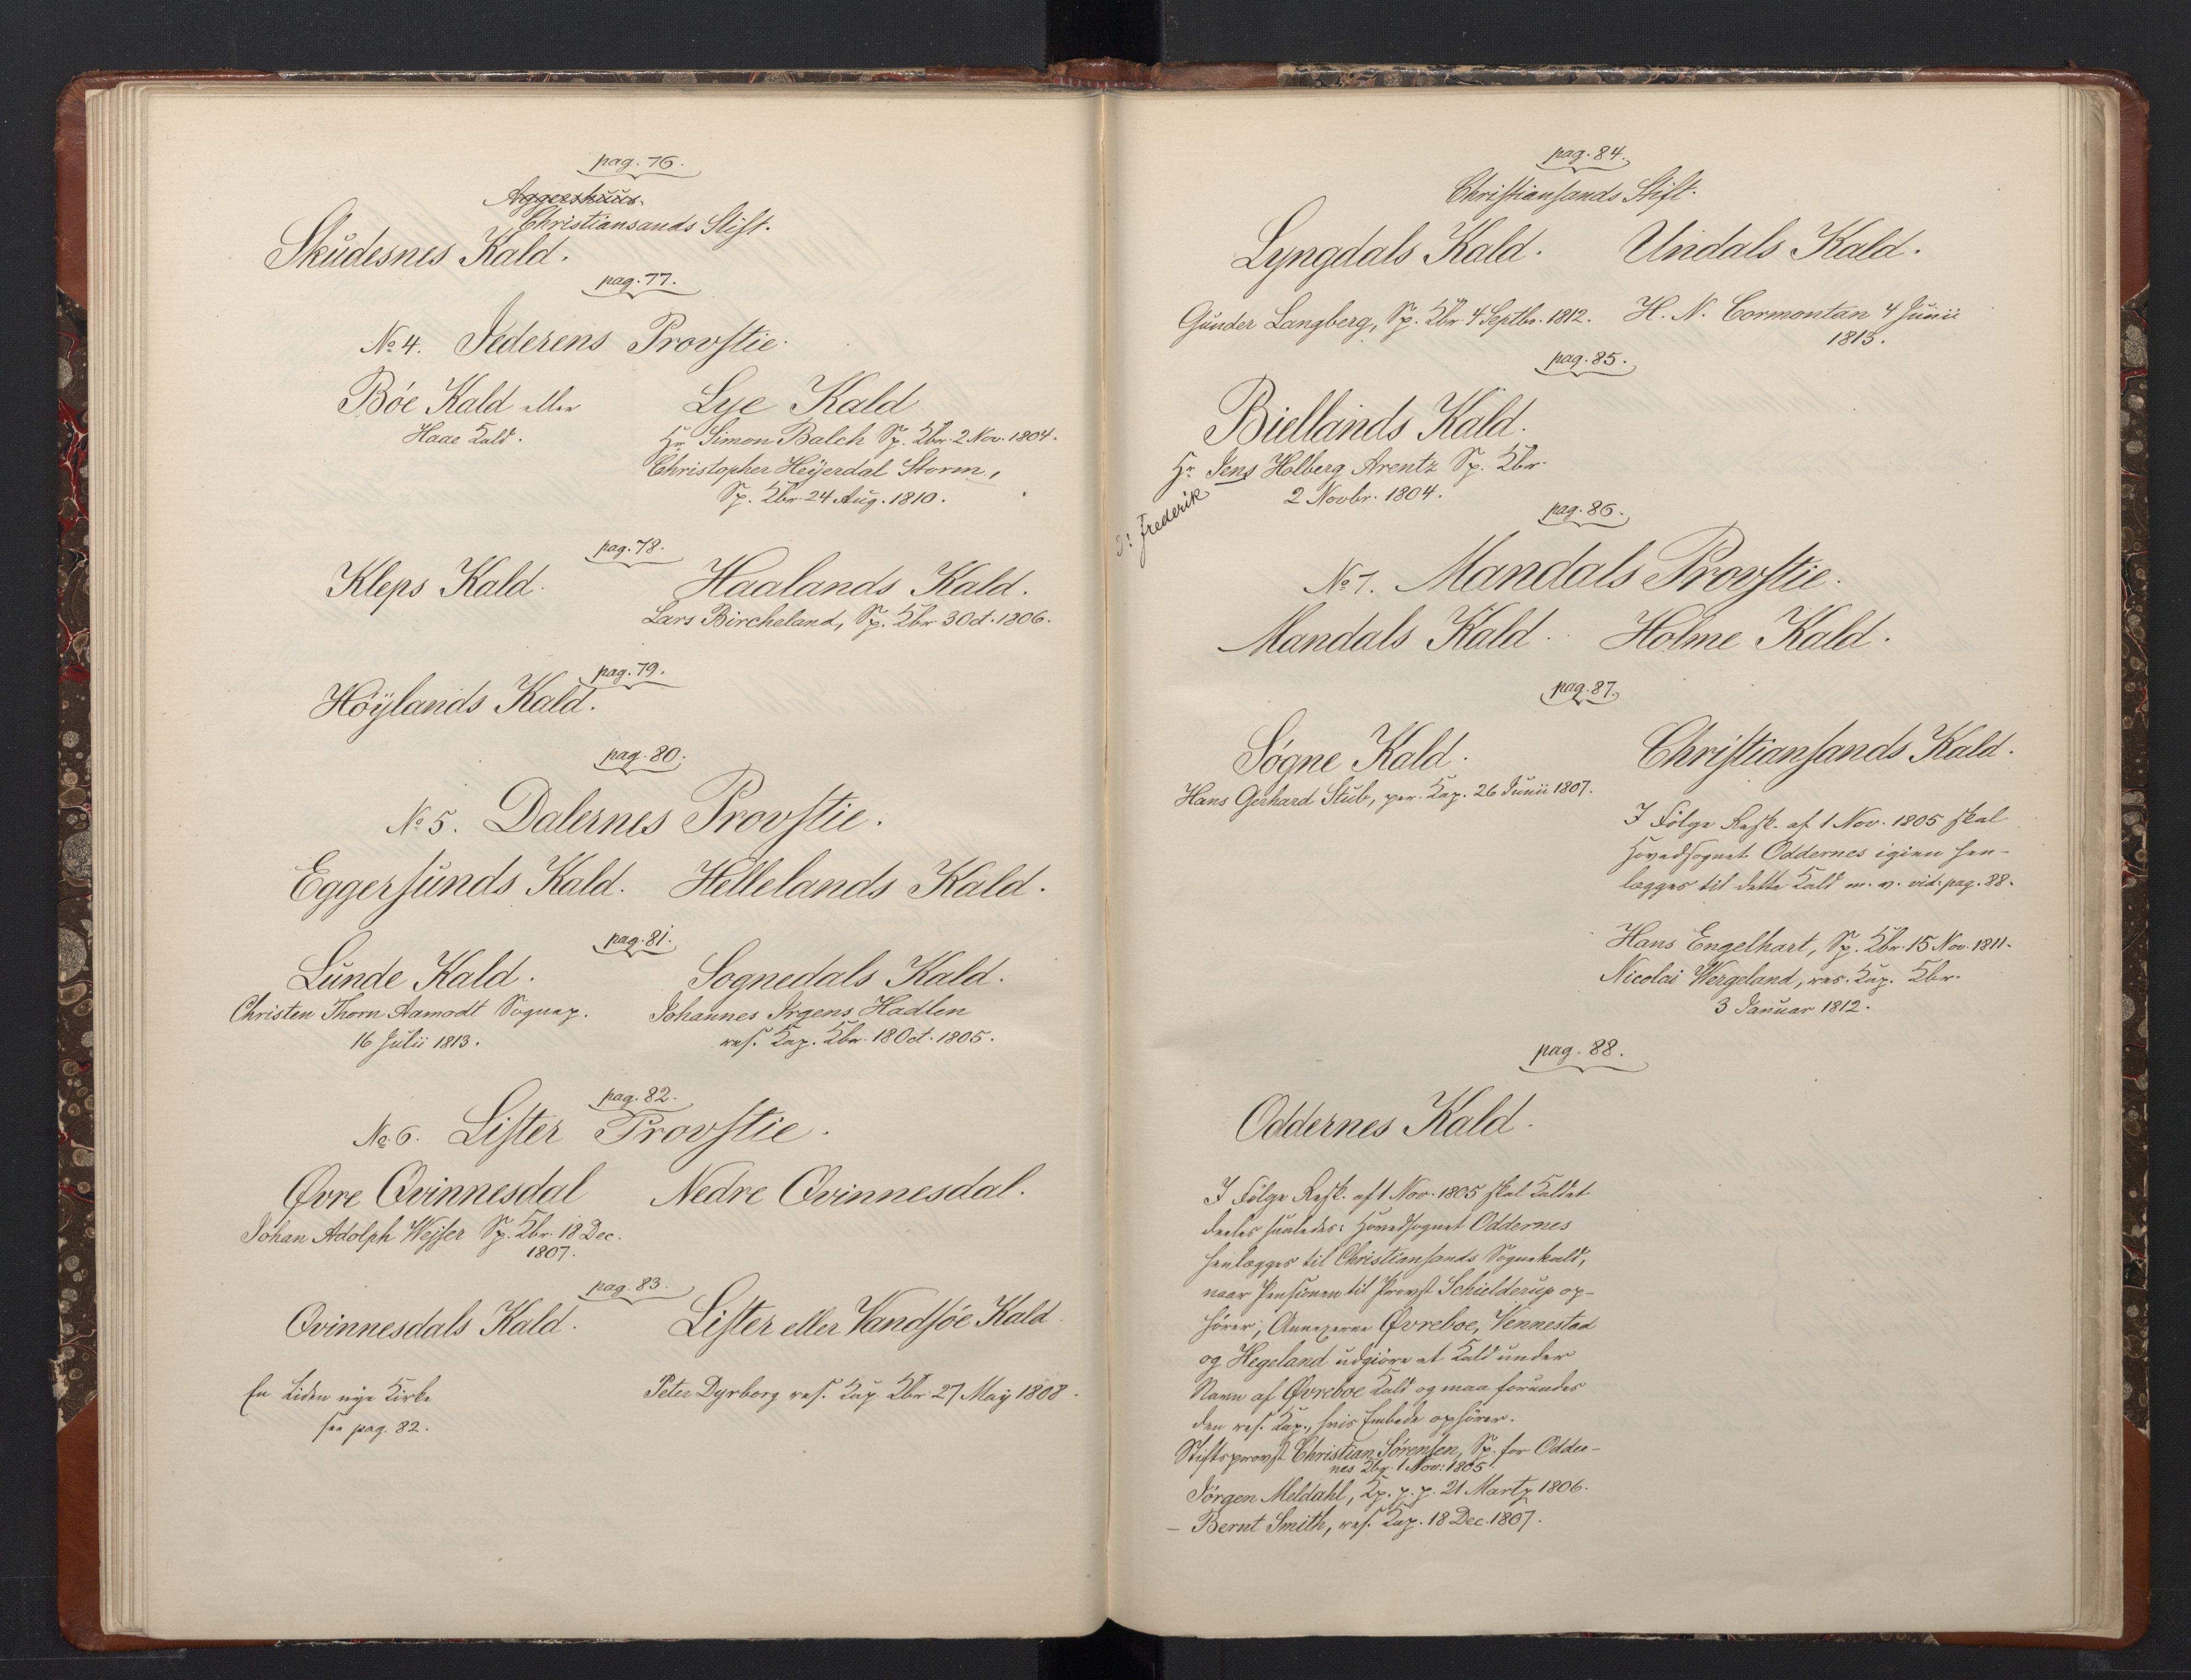 pag. 76.
Aggershuus
Christiansands Stift.
Skudesnes Kald.
pag. 77.
No 4. Jederens Provstie.
Bóe Kald eller
Haae Kald.
Lye Kald
Hr Simon Balch Sp. Kbr. 2 Nov. 1804.
Christopher Heÿerdal Storm,
Sp. Kbr. 24 Aug. 1810.
pag. 78.
Kleps Kald.
Haalands Kald.
Lars Bircheland, Sp. Kbr 3 Oct. 1806.
pag. 79.
Höÿlands Kald.
pag. 80.
No 5. Dalernes Provstie.
Eggersunds Kald. Hellelands Kald.
pag. 81.
Lunde Kald.
Christen Thorn Aamodt Sognep.
16 Julii 1813.
Sognedals Kald.
Johannes Irgens Hadlen
res. Kap. Kbr. 18 Oct. 1805.
pag. 82.
No 6. Lister Provstie.
Øvre Qvinnesdal Nedre Qvinnesdal.
Johan Adolph Wejser Sp. Kbr. 18 Dec.
1807.
pag. 83.
Qvinnesdals Kald. Lister eller Vandsóe Kald.
En liden nye Kirke
see pag. 82.
Peter Dyrborg res. Kap. Kbr. 27 Maÿ 1808.
pag. 84.
Christiansands Stift.
Lyngdals Kald. Undals Kald.
Gunder Langberg, Sp. Kbr. 4 Septbr. 1812. H. N. Cormontan 4 Junii
1813.
pag. 85.
Biellands Kald.
Hr Jens Holberg Arentz Sp. Kbr.
2 Novbr. 1804.
ɔ: Frederik
pag. 86.
No 7. Mandals Provstie.
Mandals Kald. Holme Kald.
pag. 87.
Sógne Kald.
Hans Gerhard Stub, per. Kap. 26 Junii 1807.
Christiansands Kald.
I Fölge Resk. af 1 Nov. 1805 skal
Hovedsognet Oddernes igien hen-
lægges til dette Kald m. v. vid: pag. 88.
Hans Engelhart, Sp. Kbr. 15 Nov. 1811.
Nicolai Wergeland, res. Kap. Kbr.
3 Januar 1812.
pag. 88.
Oddernes Kald.
I Fölge Resk. af 1 Nov. 1805 skal Kaldet
deeles saaledes: Hovedsognet Oddernes
henlægges til Christiansands Sognekald,
naar Pensionen til Provst Schielderup op-
hörer; Annexerne Øvreboe, Vennestad
og Hegeland udgiöre et Kald under
Navn af Øvreboe Kald og maa forundes
den res. Kap., hvis Embede ophörer.
Stiftsprovst Christian Sørensen, Sp. for Odder-
nes Kbr. 1 Nov: 1805.
Jörgen Meldahl, Kp. p. p. 21 Martz 1806.
– Bernt Smith, res. Kap. 18 Dec. 1807.